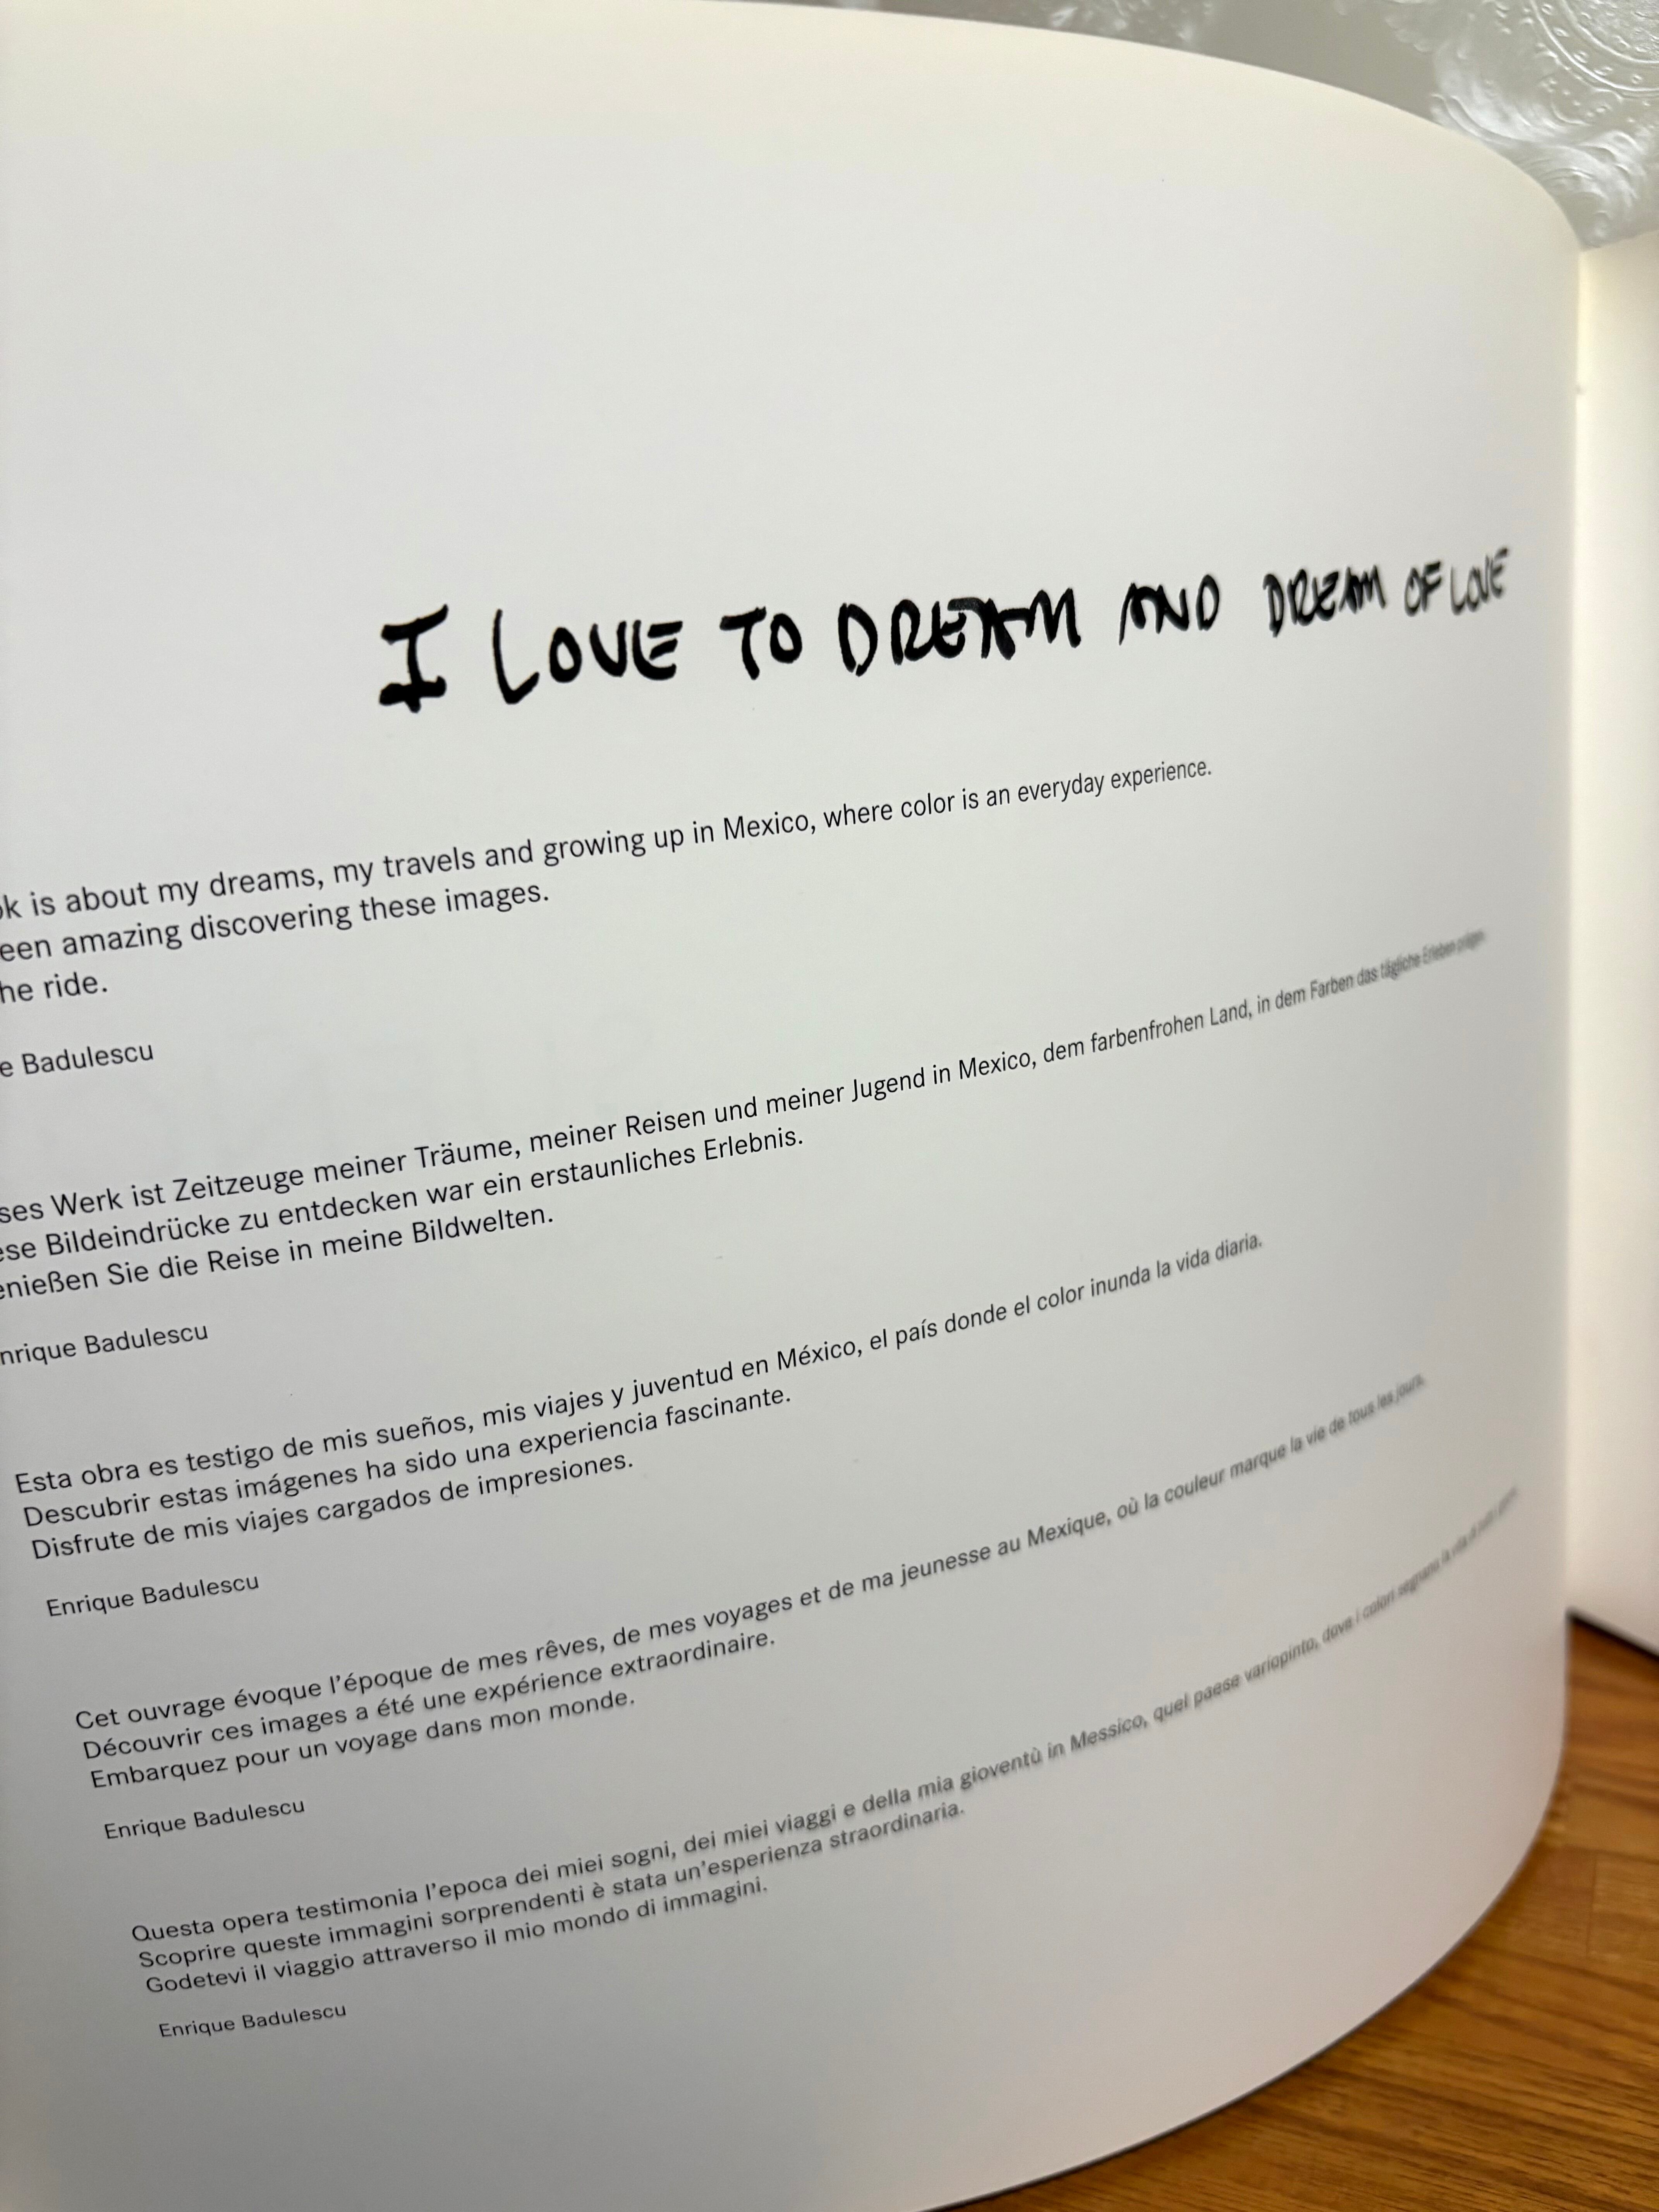 I LOVE TO DREAM AND DREAM OF LOVE
is about my dreams, my travels and growing up in Mexico, where color is an everyday experience.
amazing discovering these images.
ride.
Badulescu
Werk ist Zeitzeuge meiner Träume, meiner Reisen und meiner Jugend in Mexico, dem farbenfrohen Land, in dem Farben das tägliche Erleben
Bildeindrücke zu entdecken war ein erstaunliches Erlebnis.
Sie die Reise in meine Bildwelten.
Badulescu
Esta obra es testigo de mis sueños, mis viajes y juventud en México, el país donde el color inunda la vida diaria.
Descubrir estas imágenes ha sido una experiencia fascinante.
Disfrute de mis viajes cargados de impresiones.
Enrique Badulescu
Cet ouvrage évoque l'époque de mes rêves, de mes voyages et de ma jeunesse au Mexique, où la couleur marque la vie de tous les jours.
Découvrir ces images a été une expérience extraordinaire.
Embarquez pour un voyage dans mon monde.
Enrique Badulescu
Questa opera testimonia l'epoca dei miei sogni, dei miei viaggi e della mia gioventù in Messico, quel paese variopinto, dove i colori segnano la vita di tutti i
Scoprire queste immagini sorprendenti è stata un'esperienza straordinaria.
Godetevi il viaggio attraverso il mio mondo di immagini.
Enrique Badulescu